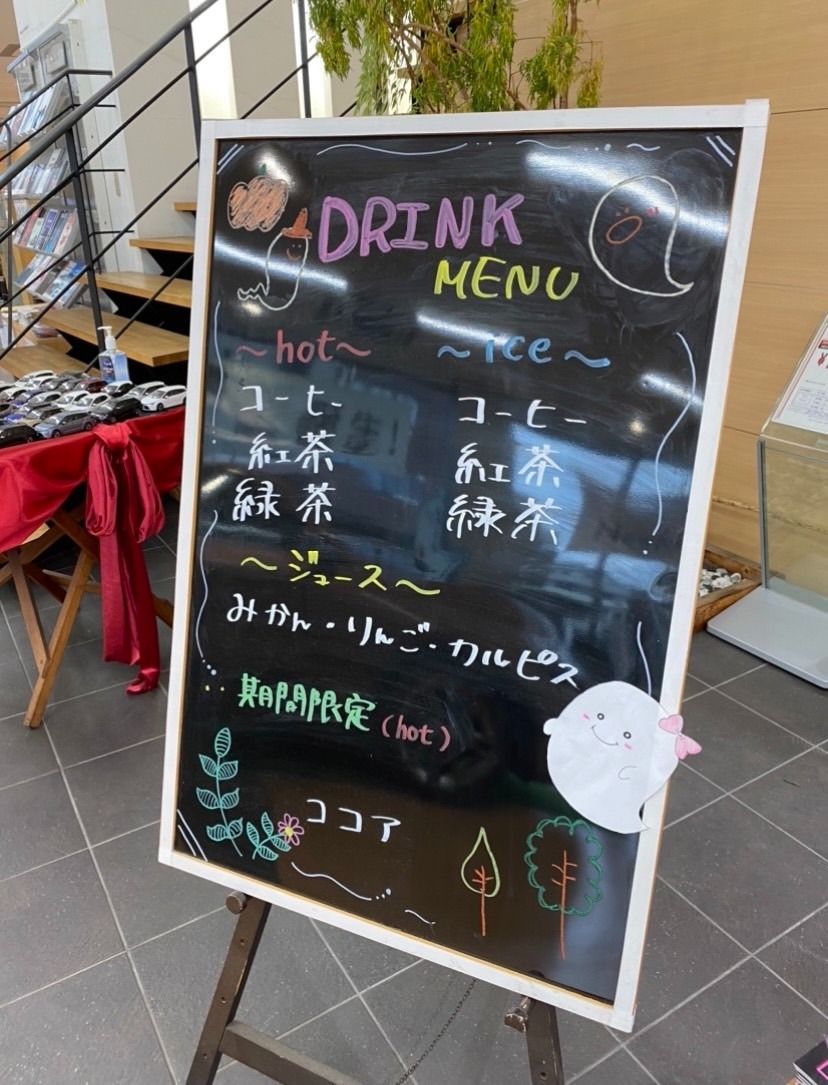 DRINK
MENU
~hot~
コーヒー
紅茶
緑茶
~ice~
コーヒー
紅茶
緑茶
~ジュース~
みかん・りんご・カルピス
期間限定(hot)
ココア